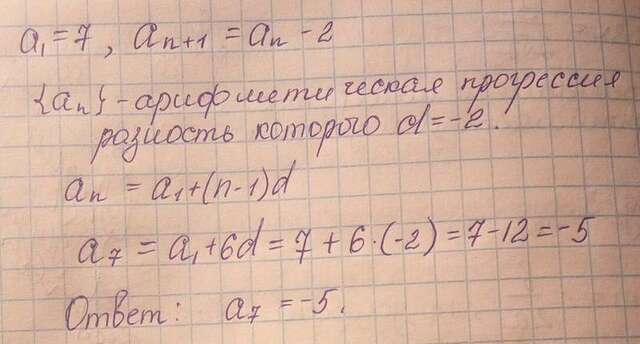 a₁ = 7 , aₙ₊₁ = aₙ - 2
{aₙ} - арифметическая прогрессия
разность которого d = -2.
aₙ = a₁ + (n-1)d
a₇ = a₁ + 6d = 7 + 6·(-2) = 7 - 12 = -5
Ответ: a₇ = -5.